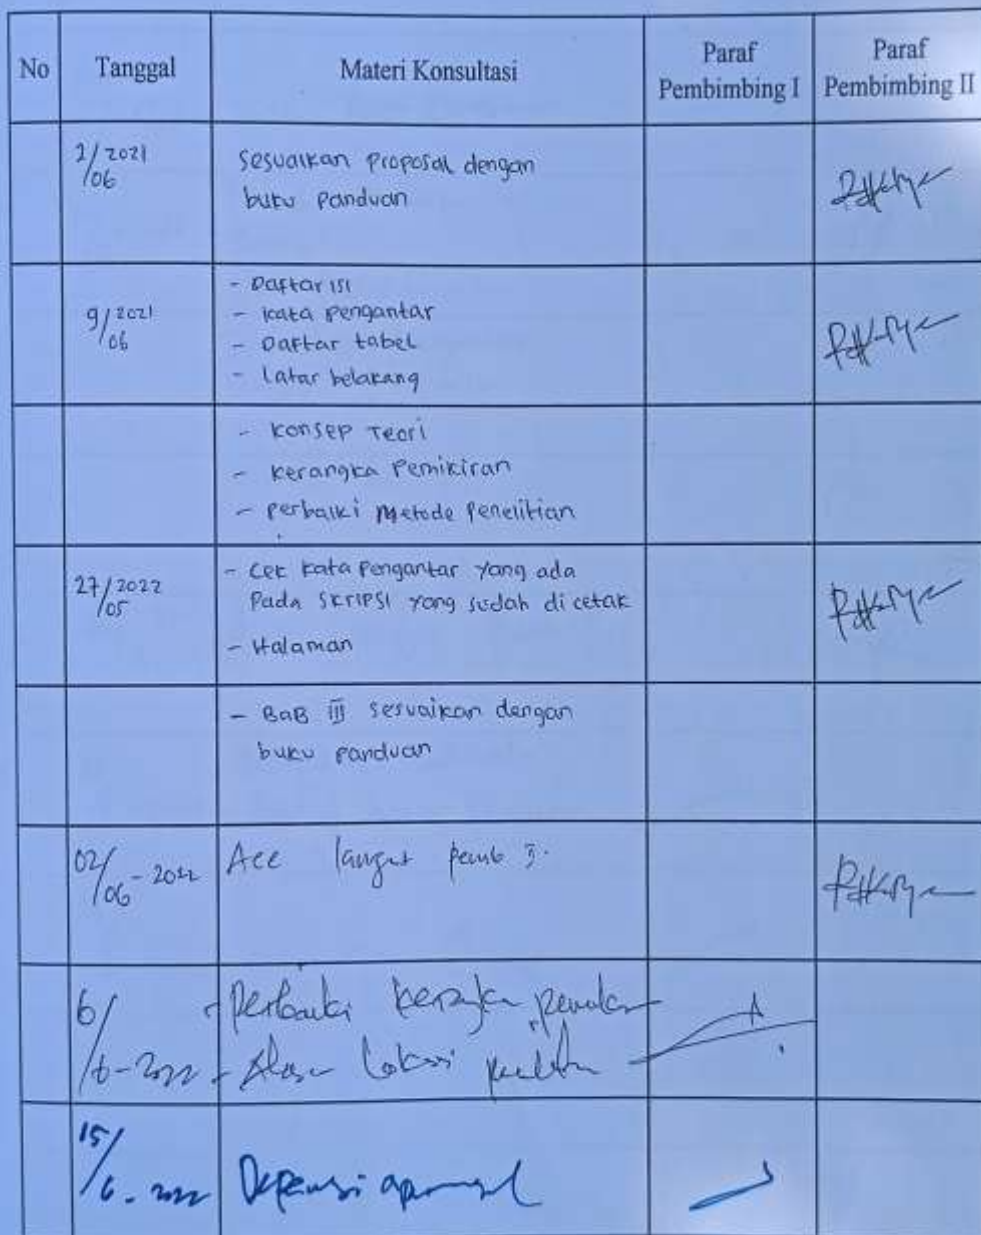 No Tanggal Materi Konsultasi Paraf Pembimbing I Paraf Pembimbing II
2/06 2021 Sesuaikan Proposal dengan
buku Panduan
9/06 2021 - Daftar isi
- kata pengantar
- Daftar tabel
- Latar belakang
- Konsep Teori
- Kerangka Pemikiran
- Perbaiki Metode Penelitian
27/05 2022 - Cek kata pengantar yang ada
Pada SKRIPSI yang sudah di cetak
- Halaman
- BAB III sesuaikan dengan
buku panduan
02/06-2022 Acc pemb
6/6-2022 - Perbaiki
- lokasi
15/6-2022